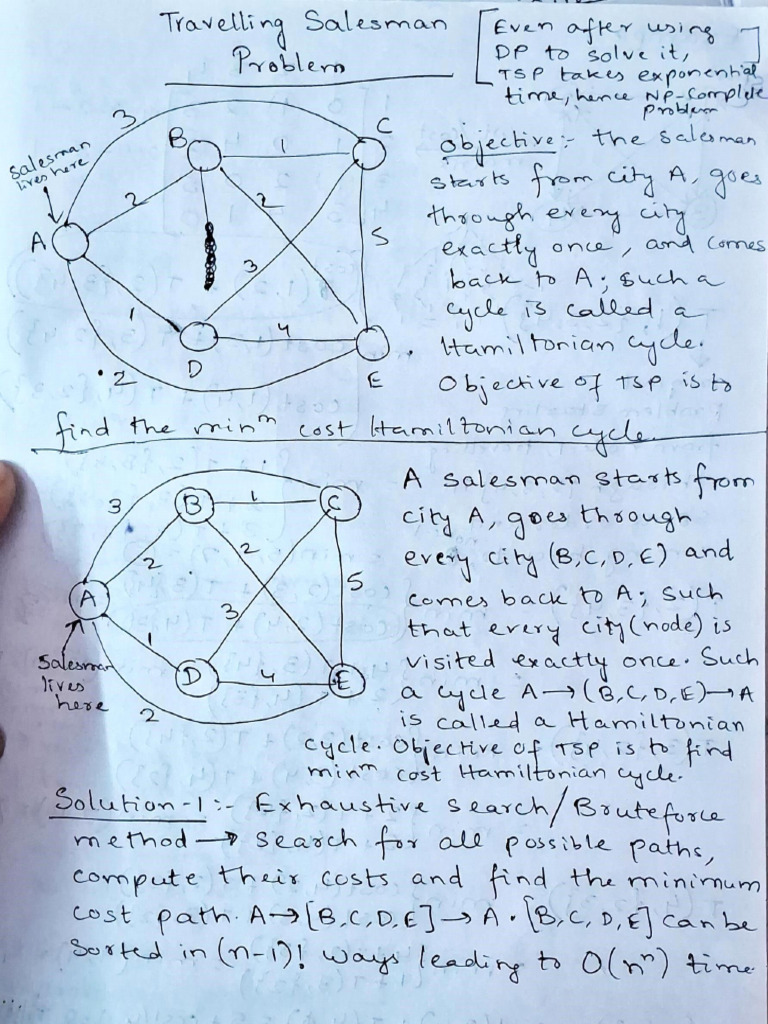 Travelling Salesman
Problem
[Even after using
DP to solve it,
TSP takes exponential
time, hence NP-Complete
Problem]
3
B
1
C
salesman
lives here
2
2
A
5
3
1
4
D
2
E
Objective:- the salesman
starts from city A, goes
through every city
exactly once, and comes
back to A; such a
cycle is called a
Hamiltonian cycle.
Objective of TSP is to
find the minm cost Hamiltonian cycle.
3
B
1
C
2
2
A
5
3
1
D
4
E
Salesman
lives
here
2
A salesman starts from
city A, goes through
every city (B,C,D,E) and
comes back to A; such
that every city(node) is
visited exactly once. Such
a cycle A→(B,C,D,E)→A
is called a Hamiltonian
cycle. Objective of TSP is to find
minm cost Hamiltonian cycle.
Solution-1:- Exhaustive search/Bruteforce
method → search for all possible paths,
compute their costs and find the minimum
cost path. A→[B,C,D,E]→A. [B,C,D,E] can be
Sorted in (n-1)! ways leading to O(nⁿ) time